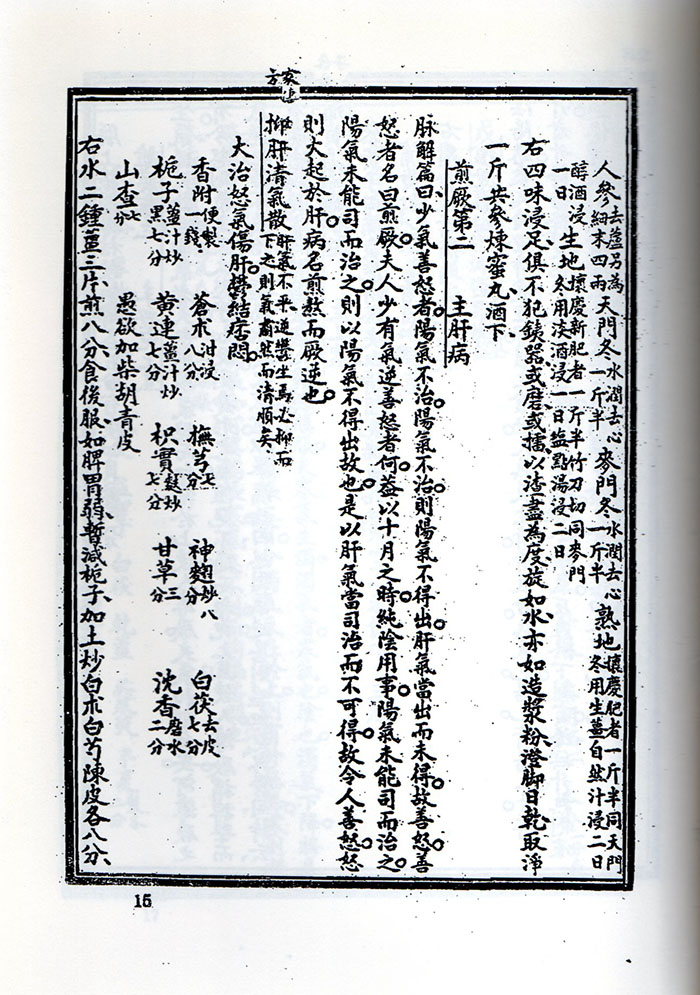 人參去蘆另為細末四兩 天門冬水潤去心一斤半 麥門冬水潤去心一斤半 熟地懷慶肥者一斤半同天門冬用生薑自然汁浸二日
醇酒浸一日 生地懷慶新肥者一斤半竹刀切同麥門冬用淡酒浸一日塩點湯浸二日
右四味浸足、俱不犯銕器、或磨、或擂、以渣盡為度、旋如水、亦如造漿粉、澄脚日乾、取淨
一斤共參煉蜜丸、酒下、
煎厥第二 主肝病
脉解篇曰、少氣善怒者。陽氣不治。陽氣不治。則陽氣不得出。肝氣當出而未得。故善怒。善
怒者名曰煎厥。夫人少有氣逆善怒者何。葢以十月之時。純陰用事。陽氣未能司而治之。
陽氣未能司而治之。則以陽氣不得出故也。是以肝氣當司治而不可得。故令人善怒。怒
則火起於肝。病名煎熬而厥逆也。
抑肝清氣散 肝氣不平、逆鬱生焉、必抑而下之、則氣肅然而清順矣、
大治怒氣傷肝。鬱結痞悶。
香附便製一錢 蒼朮泔浸八分 撫芎七分 神麯炒八分 白茯去皮七分
梔子薑汁炒黑七分 黃連薑汁炒七分 枳實麩炒七分 甘草三分 沈香磨水二分
山查七分 愚欲加柴胡青皮
右水二鍾薑三片、煎八分、食後服、如脾胃弱、暫減梔子、加土炒白朮白芍陳皮各八分、
15